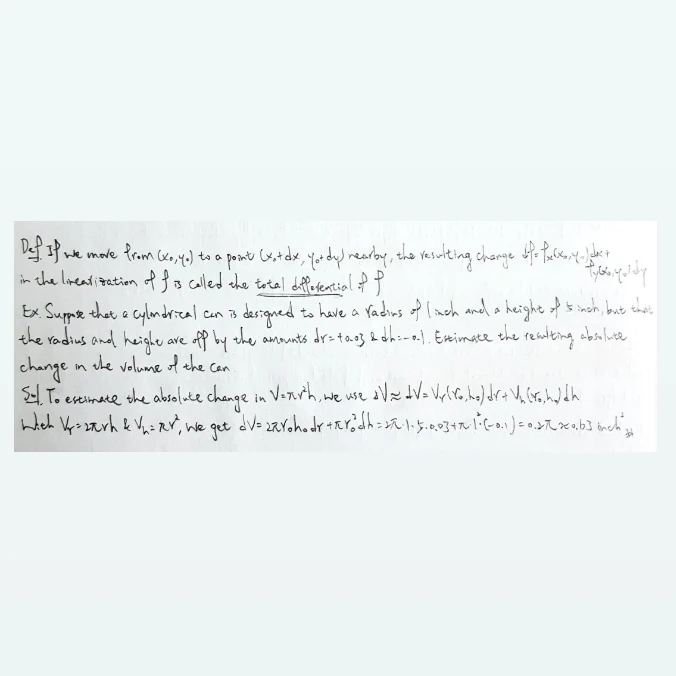 Def If we move from (x₀,y₀) to a point (x₀+dx, y₀+dy) nearby, the resulting change df = fₓ(x₀,y₀)dx + f_y(x₀,y₀)dy
in the linearization of f is called the total differential of f
Ex. Suppose that a cylindrical can is designed to have a radius of 1 inch and a height of 5 inch, but that
the radius and height are off by the amounts dr=+0.03 & dh=-0.1. Estimate the resulting absolute
change in the volume of the can
Sol. To estimate the absolute change in V=πr²h, we use ΔV≈dV=Vᵣ(r₀,h₀)dr+Vₕ(r₀,h₀)dh
With Vᵣ=2πrh & Vₕ=πr², we get dV=2πr₀h₀dr+πr₀²dh=2π·1·5·0.03+π·1²·(-0.1)=0.2π≈0.63 inch